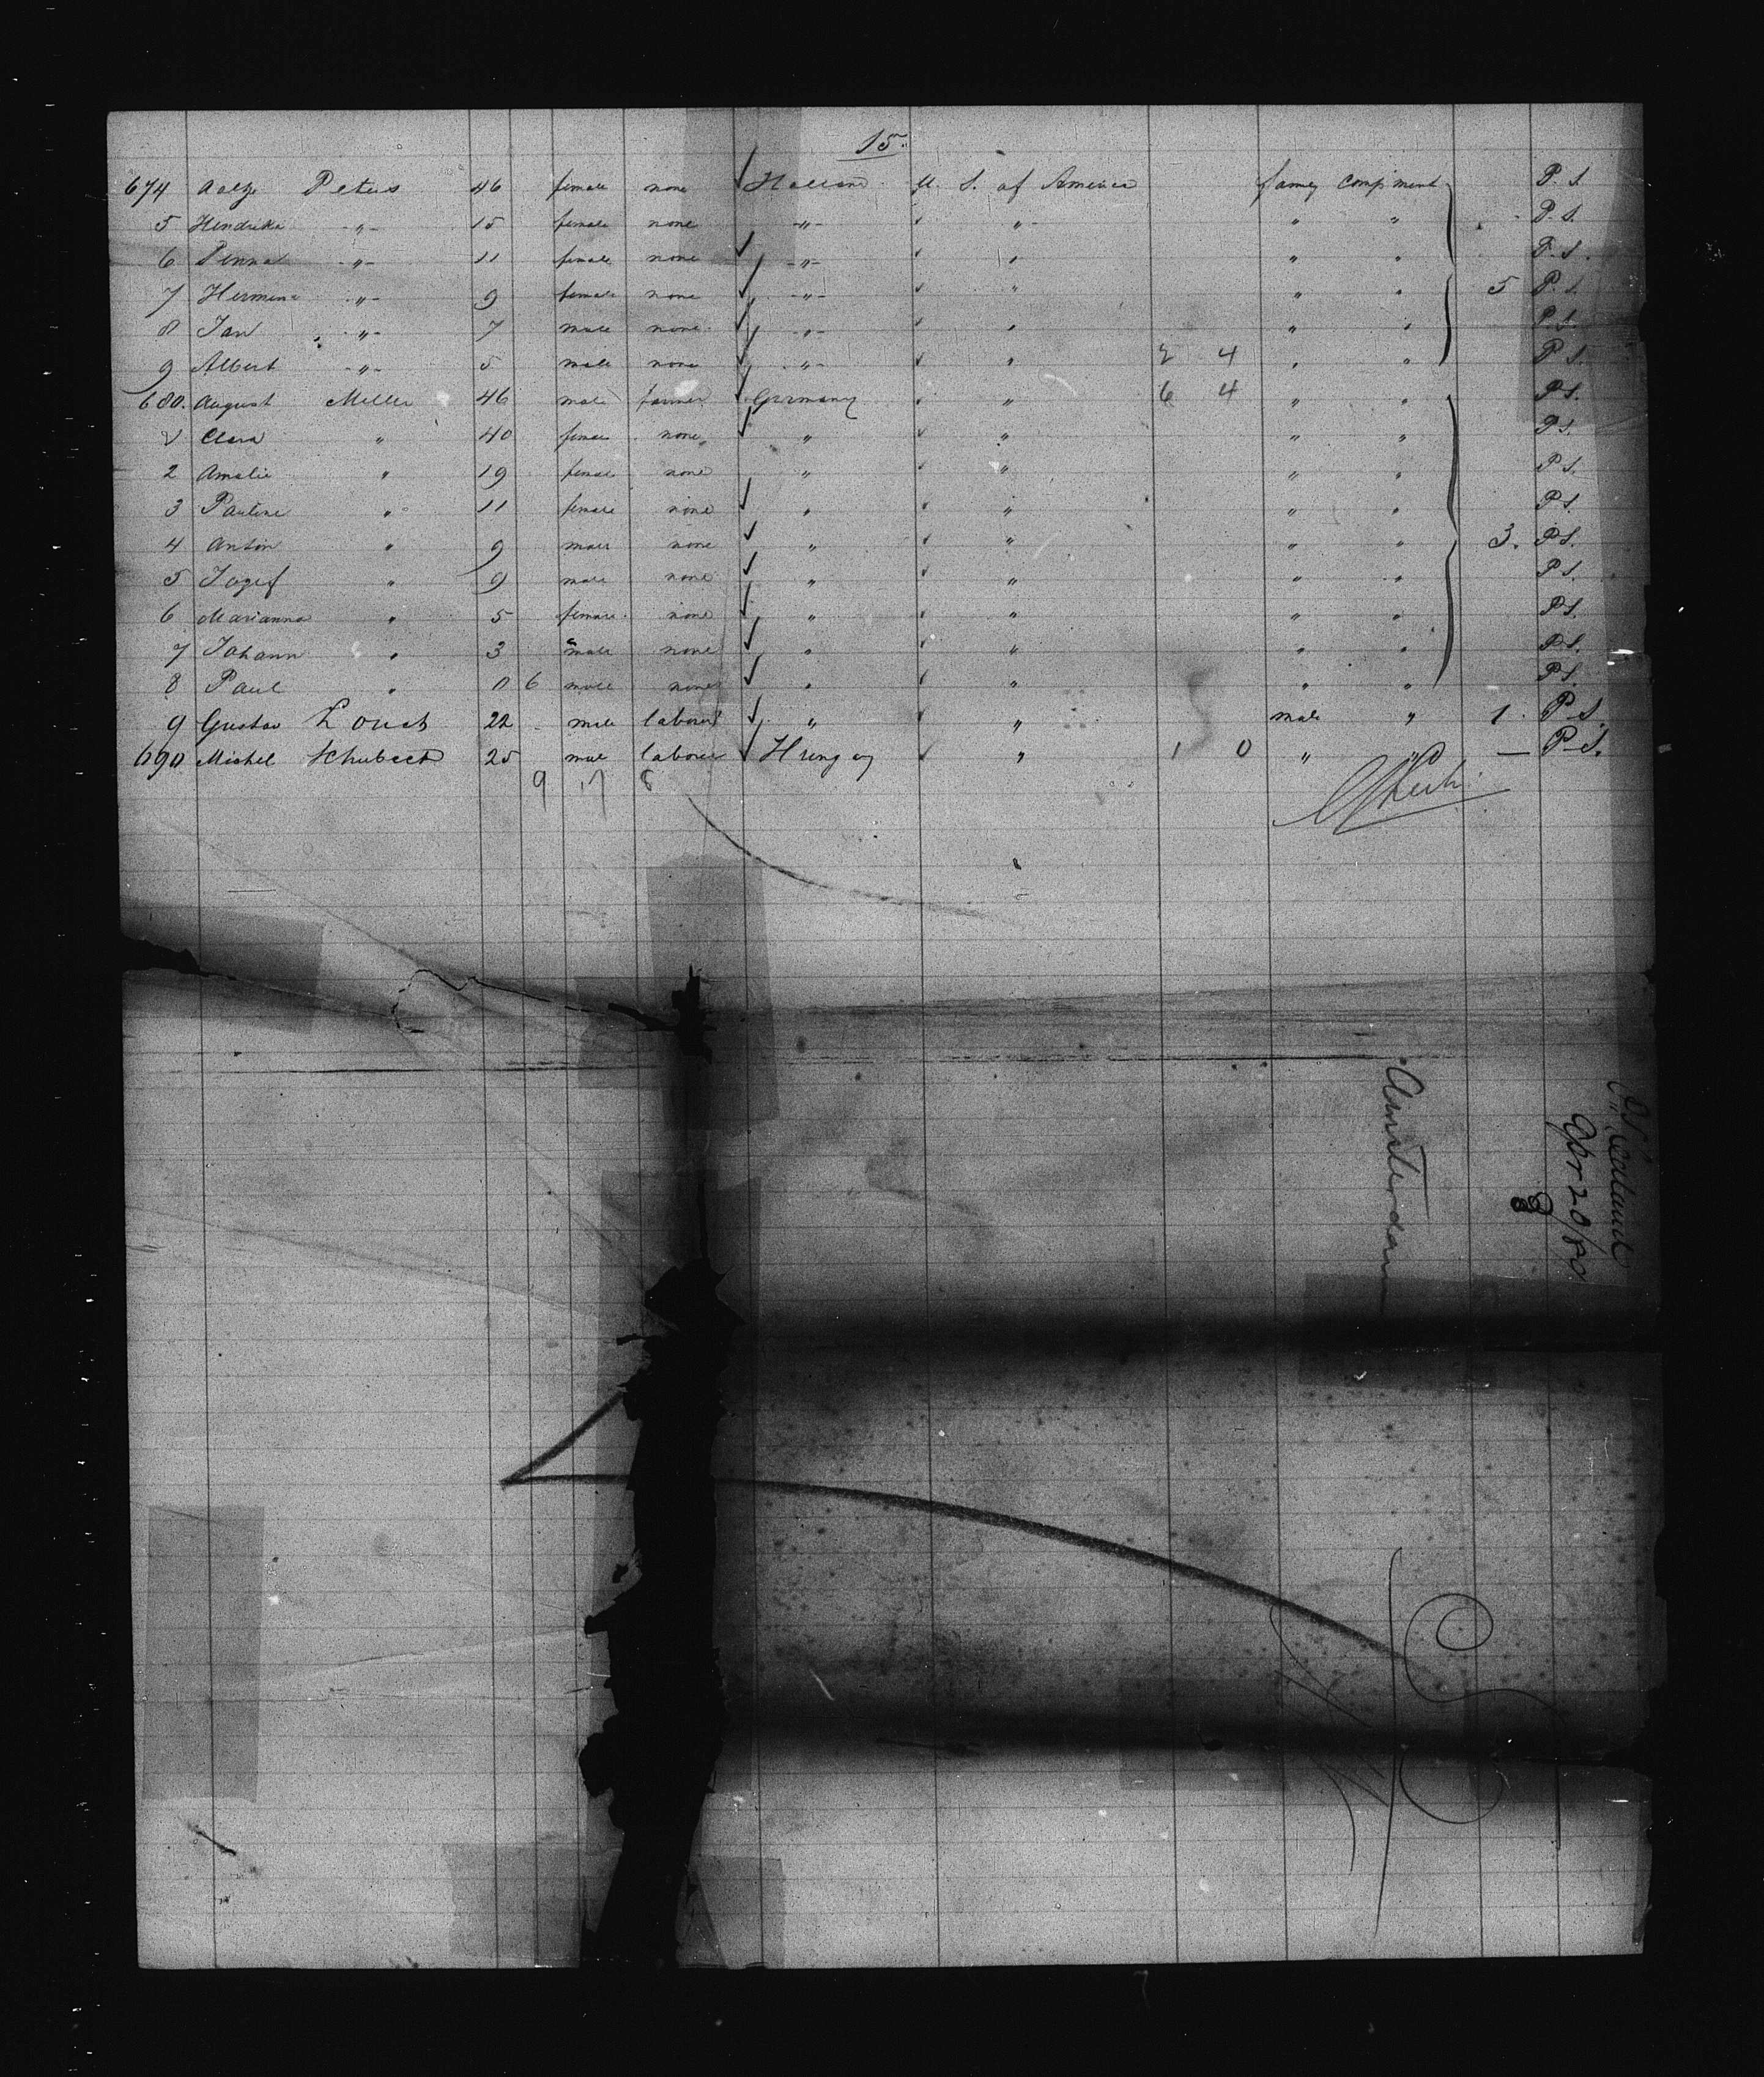 15.
674 Aalze Peters 46 female none Holland U. S. of America famy compiment P. S.
5 Hendrika -"- 15 female none -"- " - " " P. S.
6 Pinna -"- 11 female none -"- " " " P. S.
7 Hermina -"- 9 female none -"- " " " 5 P. S.
8 Jan -"- 7 male none -"- " " " P. S.
9 Albert -"- 5 male none -"- " 2 4 " " P. S.
680. August Meller 46 male farmer Germany " 6 4 " " P S.
Clara " 40 female none " " " " P S.
2 Amalie " 19 female none " " " " P S.
3 Pauline " 11 female none " " " " P S.
4 Anton " 9 male none " " " " 3. P S.
5 Jozef " 9 male none " " " " P S.
6 Marianna " 5 female none " " " " P S.
7 Johann " 3 male none " " " " P S.
8 Paul " 0 6 male none " " " " P S.
9 Gustav 22 male laborer " " male " 1. P. S.
690. Michel Schubert 25 male laborer Hungary " 1 0 " " — P. S.
9 17 8
Amsterdam
Apr 20/80